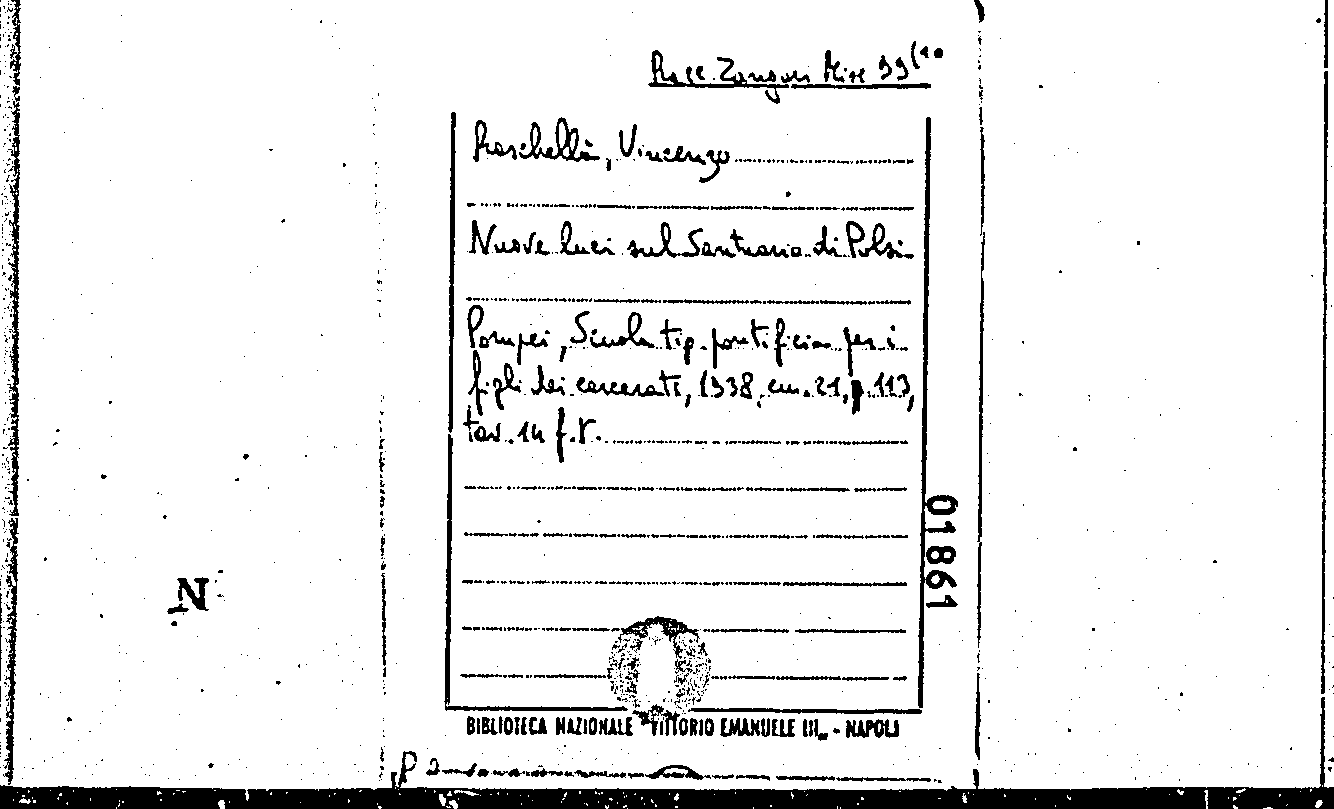 Racc. Zangari Misc 99(10
Raschellà, Vincenzo
Nuove luci sul Santuario di Polsi
Pompei, Scuola tip. pontificia per i
figli dei carcerati, 1938, cm. 21, p. 113,
tav. 14 f.t.
01861
N
BIBLIOTECA NAZIONALE "VITTORIO EMANUELE III„ - NAPOLI